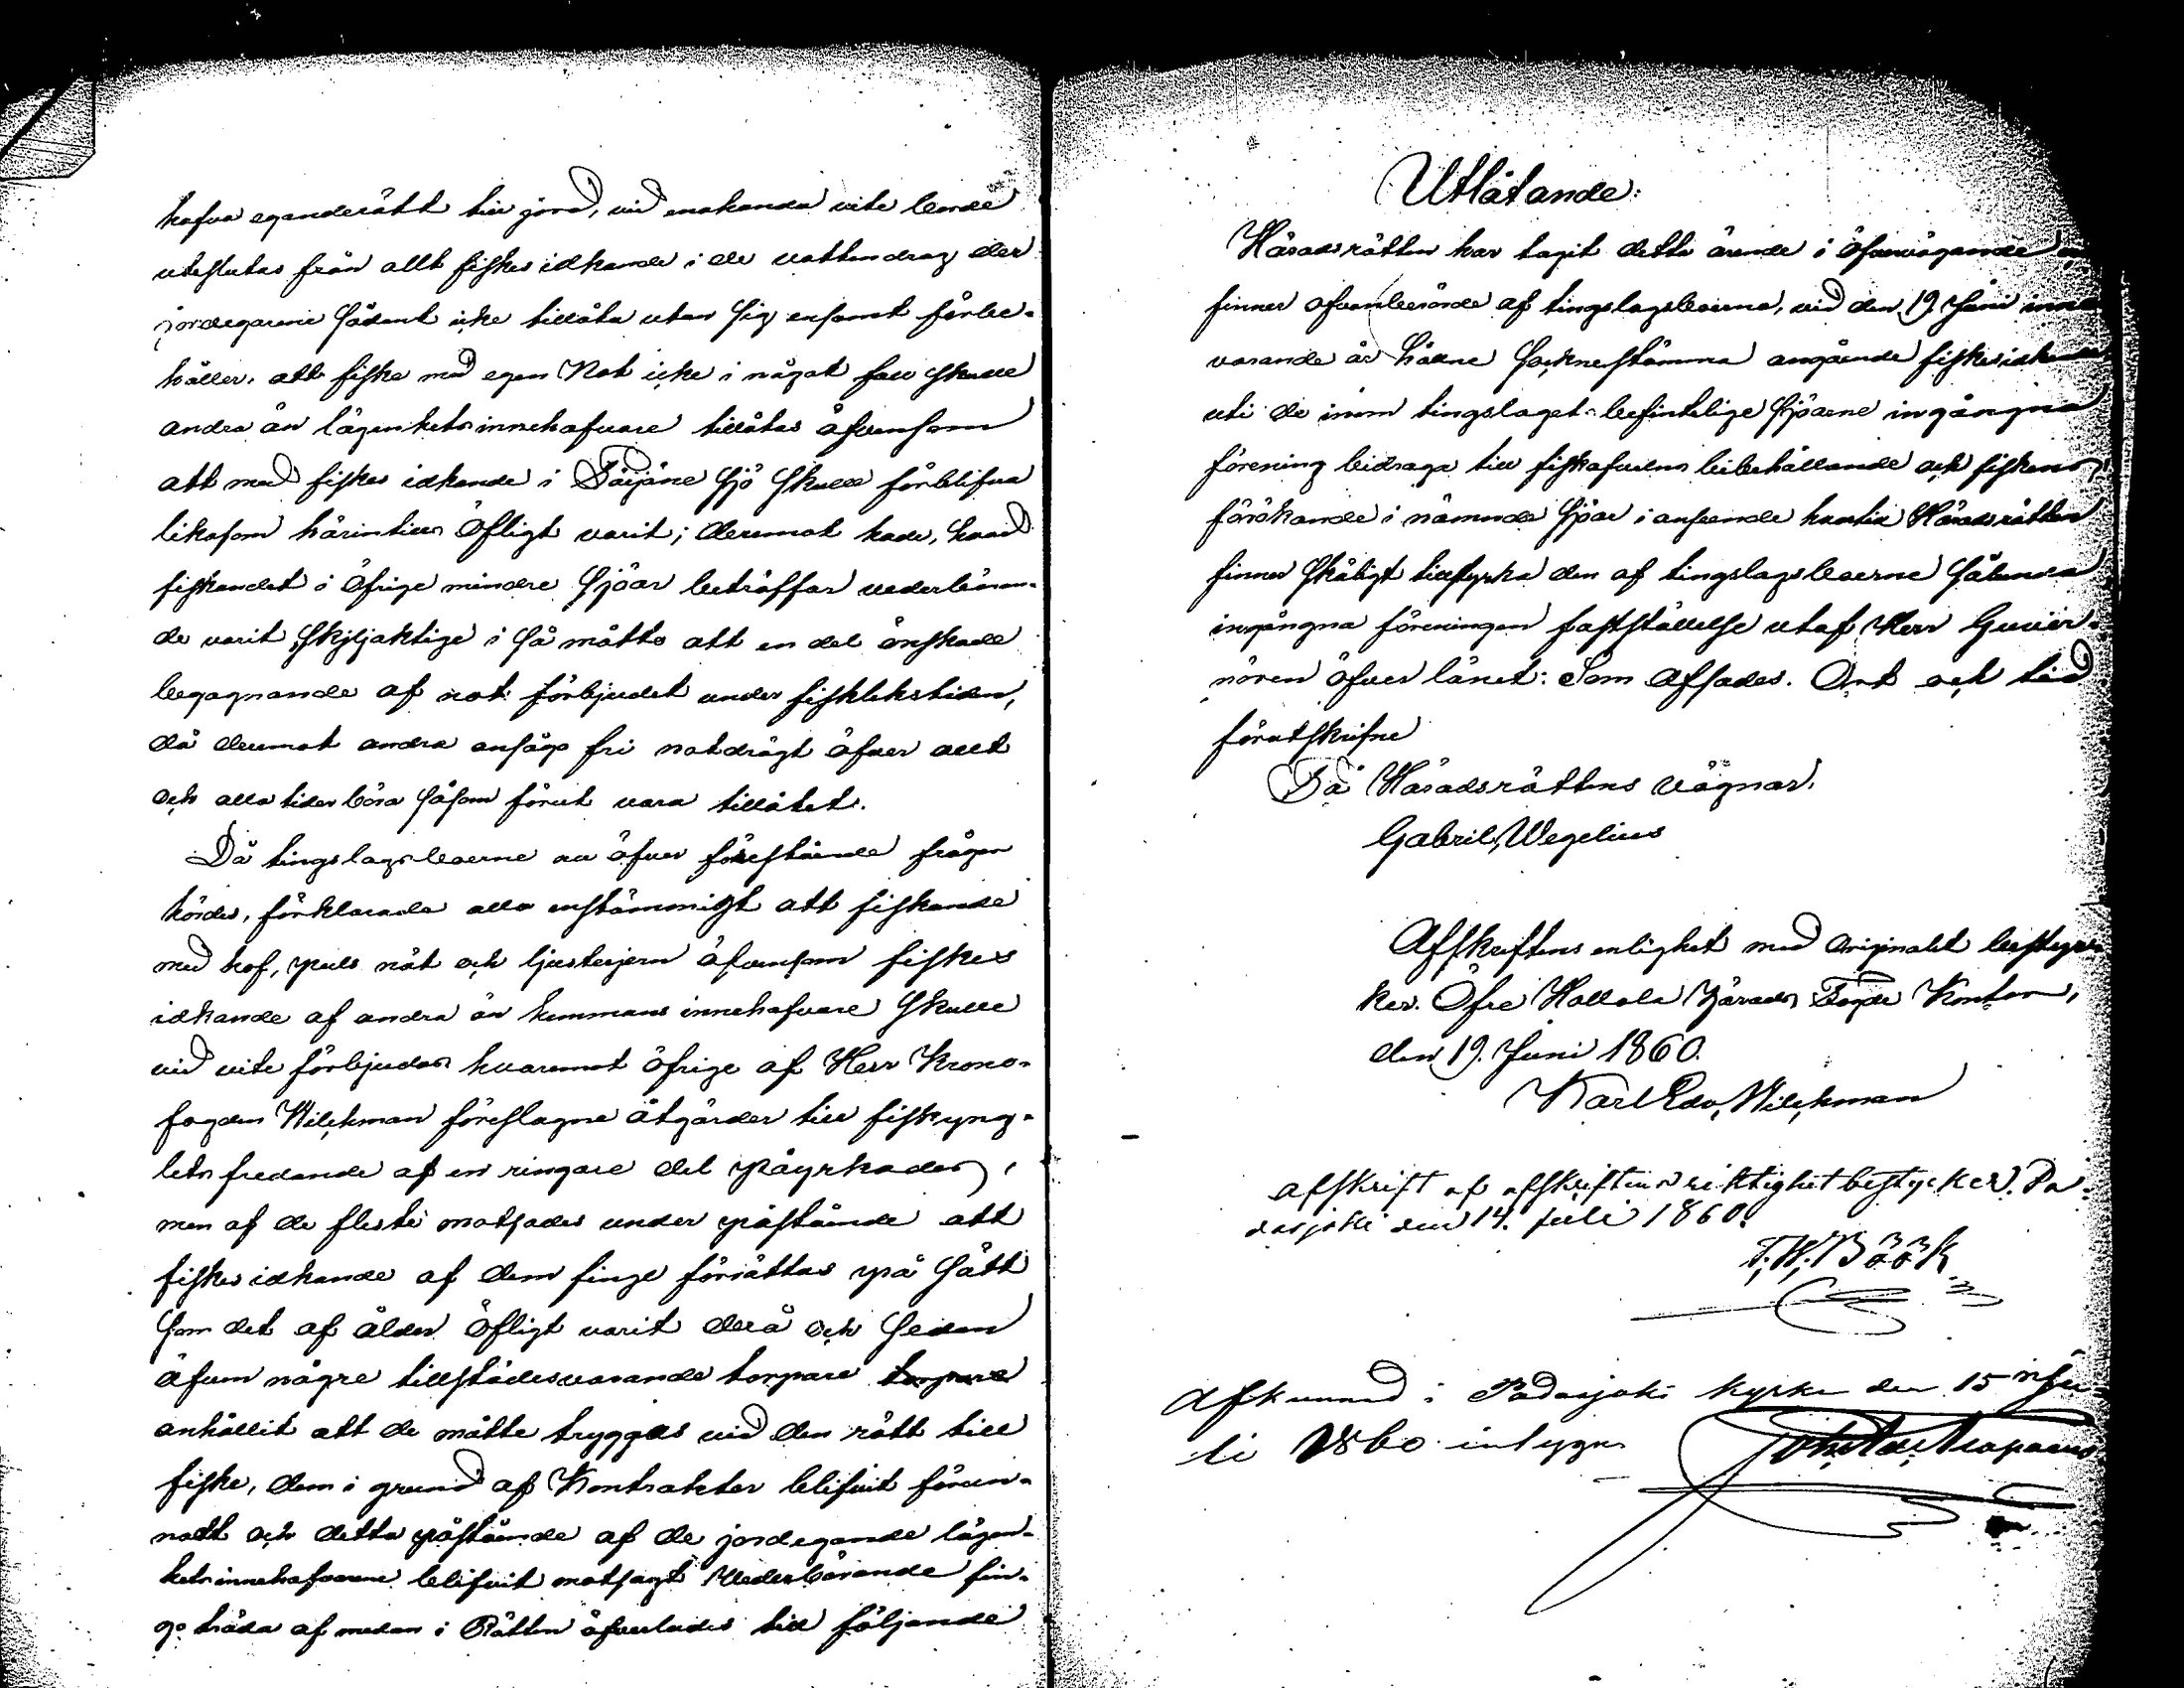 hafva eganderätt till jord, vid enahanda vite borde
uteslutas från allt fiskes idkande i de vattendrag der
jordegarene sådant icke tillåta utan sig ensamt förbe-
håller, att fiske med egen Not icke i något fall skulle
andra än lägenhets innehafvare tillåtas äfvensom
att med fiskes idkande i Päijäne sjö skulle förblifva
likasom härintills öfligt varit; deremot hade, hvad
fiskandet i öfrige mindre sjöar beträffar vederböran-
de varit skiljaktige i så måtto att en del önskade
begagnande af not förbjudet under fisklekstiden,
då deremot andra ansågo fri notdrägt öfver allt
och alla tider böra såsom förut vara tillåtet.
Då tingslagsboerne nu öfver förestående frågor
hördes, förklarade alla enstämmigt att fiskande
med kof, puls nät och ljusterjern äfvensom fiskes
idkande af andra än hemmans innehafvare skulle
vid vite förbjudas hvaremot öfrige af Herr Krono-
fogden Wilckman föreslagne åtgärder till fiskyng-
lets fredande af en ringare del påyrkades,
men af de fleste motsades under påstående att
fiskes idkande af dem finge försättas på sätt
som det af ålder öfligt varit derå och sedan
äfven någre tillstädesvarande torpare torpare
anhållit att de måtte tryggas vid den rätt till
fiske, dem i grund af Kontrakter blifvit förun-
nadt och detta påstående af de jordegande lägen-
hets innehafvarene blifvit motsagt Vederbörande fin-
go träda af medan i Rätten öfverlades till följande
Utlåtande:
Häradsrätten har tagit detta ärende i öfvervägande
finner ofvanberörde af tingslagsboerna, vid den 19 Juni inne
varande år hållne Socknestämma angående fiskes idkande
uti de inom tingslaget befintelige sjöarne ingångna
förening bidraga till fiskafvelns bibehållande och fiskens
förökande i nämnde sjöar i anseende hvartill Häradsrätten
finner skäligt tillstyrka den af tingslagsboerne sålunda
ingångna föreningen fastställelse utaf Herr Guver-
nören öfver länet: Som afsades. Ort och tid
förutskrifne
På Häradsrättens vägnar.
Gabriel Wegelius
Afskriftens enlighet med Originalet bestyr-
ker. Öfre Hollola Härads Fogde Kontor,
den 19. Juni 1860.
Karl Edv. Wilckman
afskrift af afskriftens riktighet bestycker. Pa-
dasjoki den 14. juli 1860.
T. W. Böök
Afkunnad i Padasjoki kyrka den 15 Ju-
li 1860 intygar